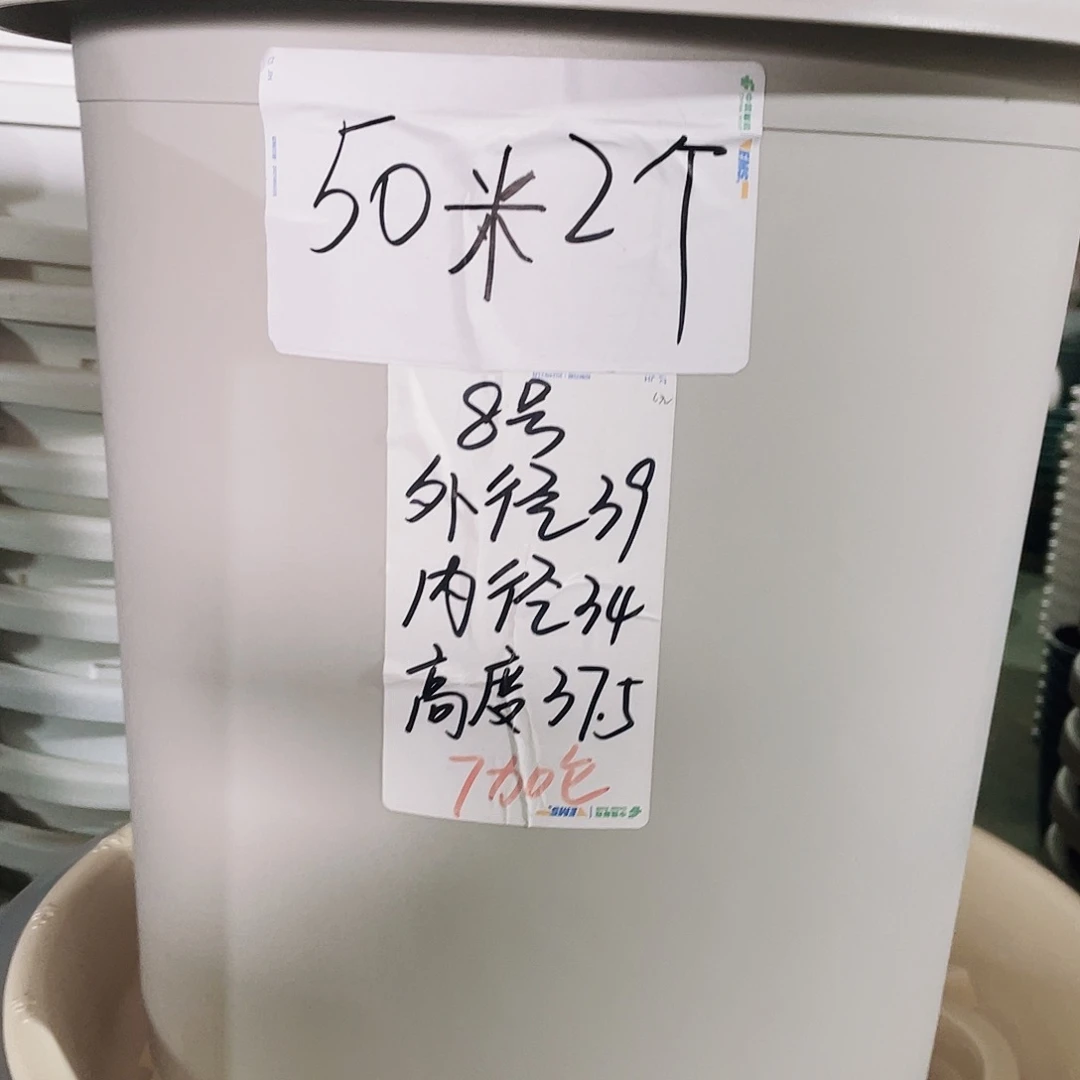 50米2个
8号
外径39
内径34
高度37.5
7加仑
EMS
EMS